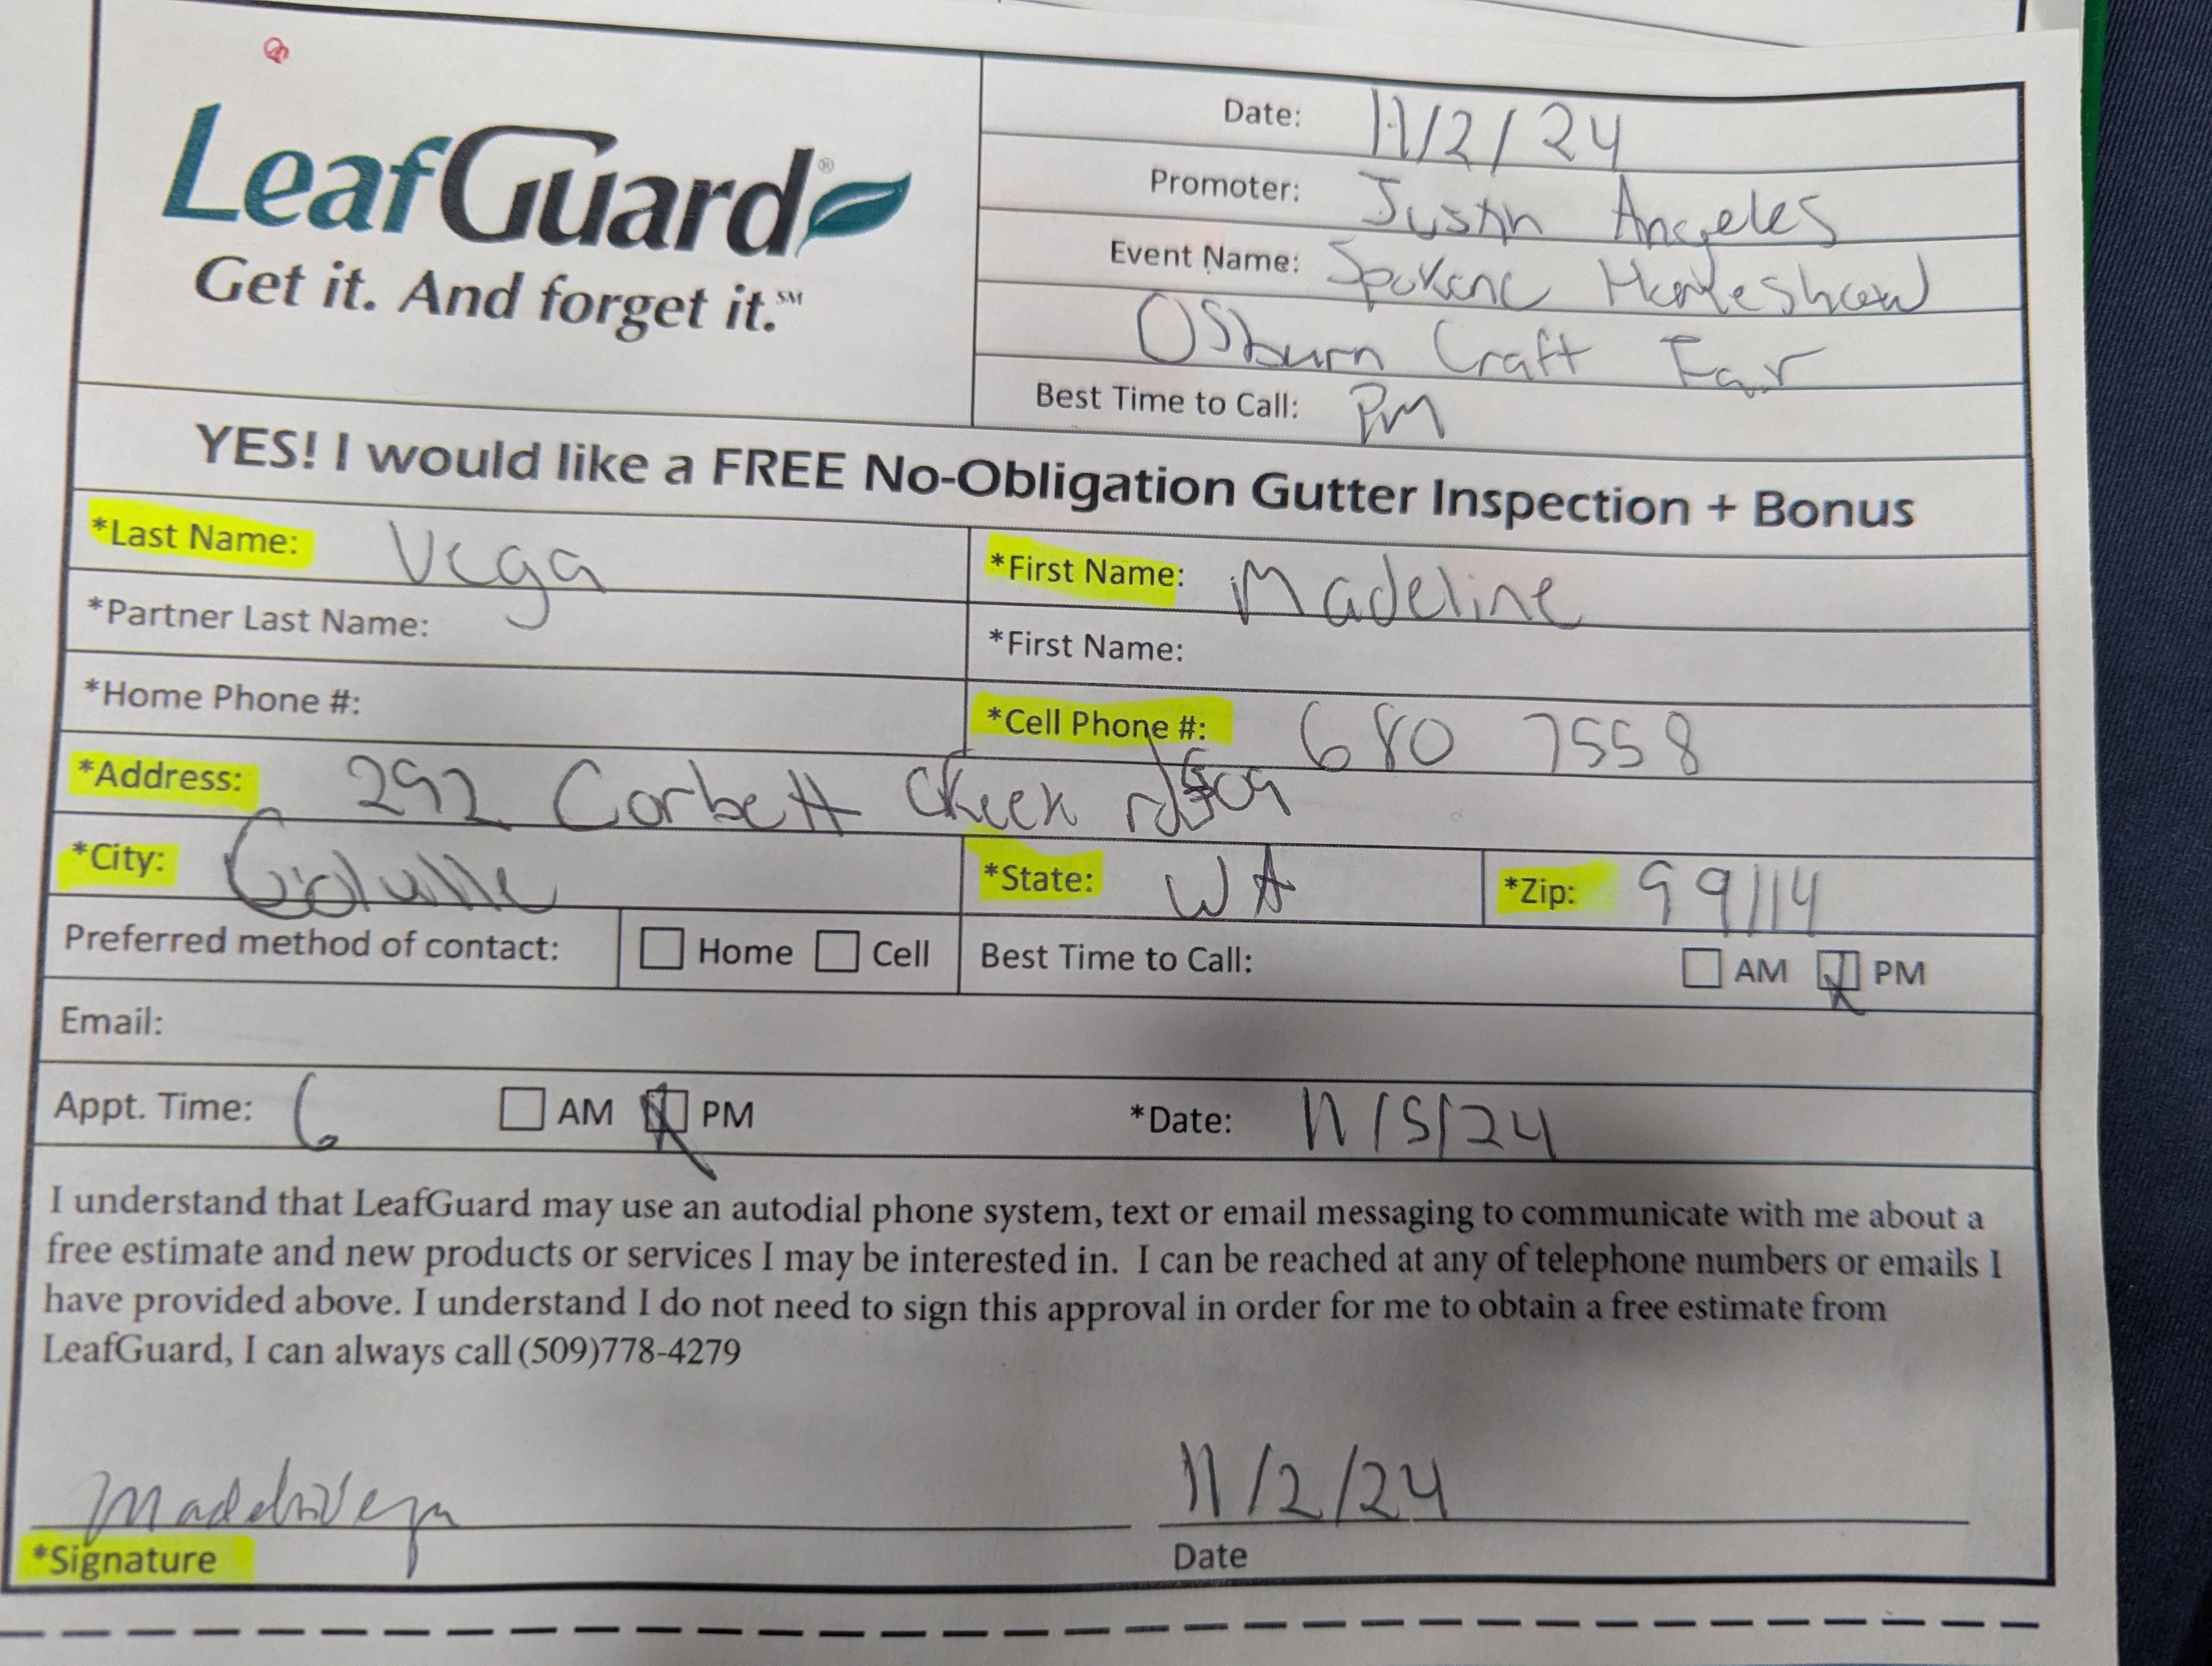 LeafGuard®
Get it. And forget it.℠
Date: 11/2/24
Promoter: Justin Angeles
Event Name: Spokane Homeshow
Osburn Craft Fair
Best Time to Call: PM
YES! I would like a FREE No-Obligation Gutter Inspection + Bonus
*Last Name: Vega *First Name: Madeline
*Partner Last Name: *First Name:
*Home Phone #: *Cell Phone #: 509 680 7558
*Address: 292 Corbett Creek rd
*City: Colville *State: WA *Zip: 99114
Preferred method of contact: Home Cell Best Time to Call: AM PM
Email:
Appt. Time: 6 AM PM *Date: 11/5/24
I understand that LeafGuard may use an autodial phone system, text or email messaging to communicate with me about a
free estimate and new products or services I may be interested in. I can be reached at any of telephone numbers or emails I
have provided above. I understand I do not need to sign this approval in order for me to obtain a free estimate from
LeafGuard, I can always call (509)778-4279
Madeline Vega 11/2/24
*Signature Date